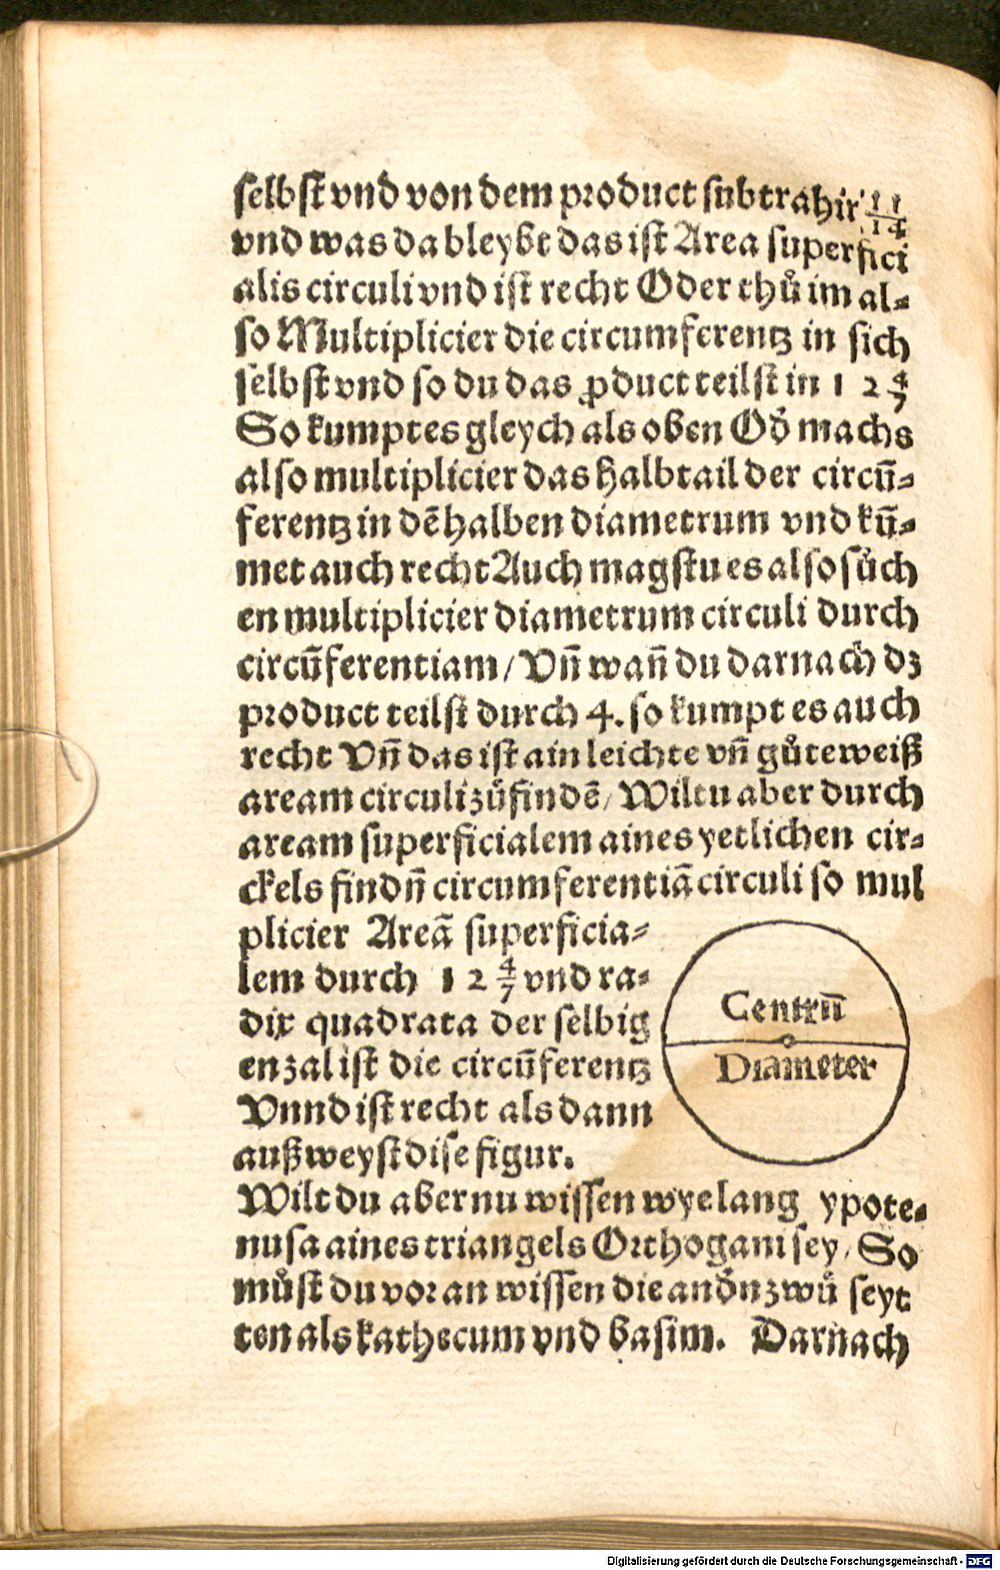 selbst vnd von dem product subtrahir 11/14
vnd was da bleybt das ist Area superfici
alis circuli vnd ist recht Oder thů im al⸗
so Multiplicier die circumferentz in sich
selbst vnd so du das ꝓduct teilst in 12 4/7
So kumpt es gleych als oben Od̕ machs
also multiplicier das halbtail der circū⸗
ferentz in dē halben diametrum vnd kū⸗
met auch recht Auch magstu es also sůch
en multiplicier diametrum circuli durch
circūferentiam/ Vn̄ wan̄ du darnach dz
product teilst durch 4. so kumpt es auch
recht Vn̄ das ist ain leichte vn̄ gůte weiß
aream circuli zůfindē/ Wiltu aber durch
aream superficialem aines yetlichen cir⸗
ckels findn̄ circumferentiā circuli so mul
plicier Areā superficia⸗
lem durch 12 4/7 vnd ra⸗
dix quadrata der selbig
en zal ist die circūferentz
Vnnd ist recht als dann
außweyst dise figur.
Centrū
Diameter
Wilt du aber nu wissen wye lang ypote⸗
nusa aines triangels Orthogani sey/ So
můst du voran wissen die and̕n zwů seyt
ten als kathecum vnd basim. Darnach
Digitalisierung gefördert durch die Deutsche Forschungsgemeinschaft - DFG